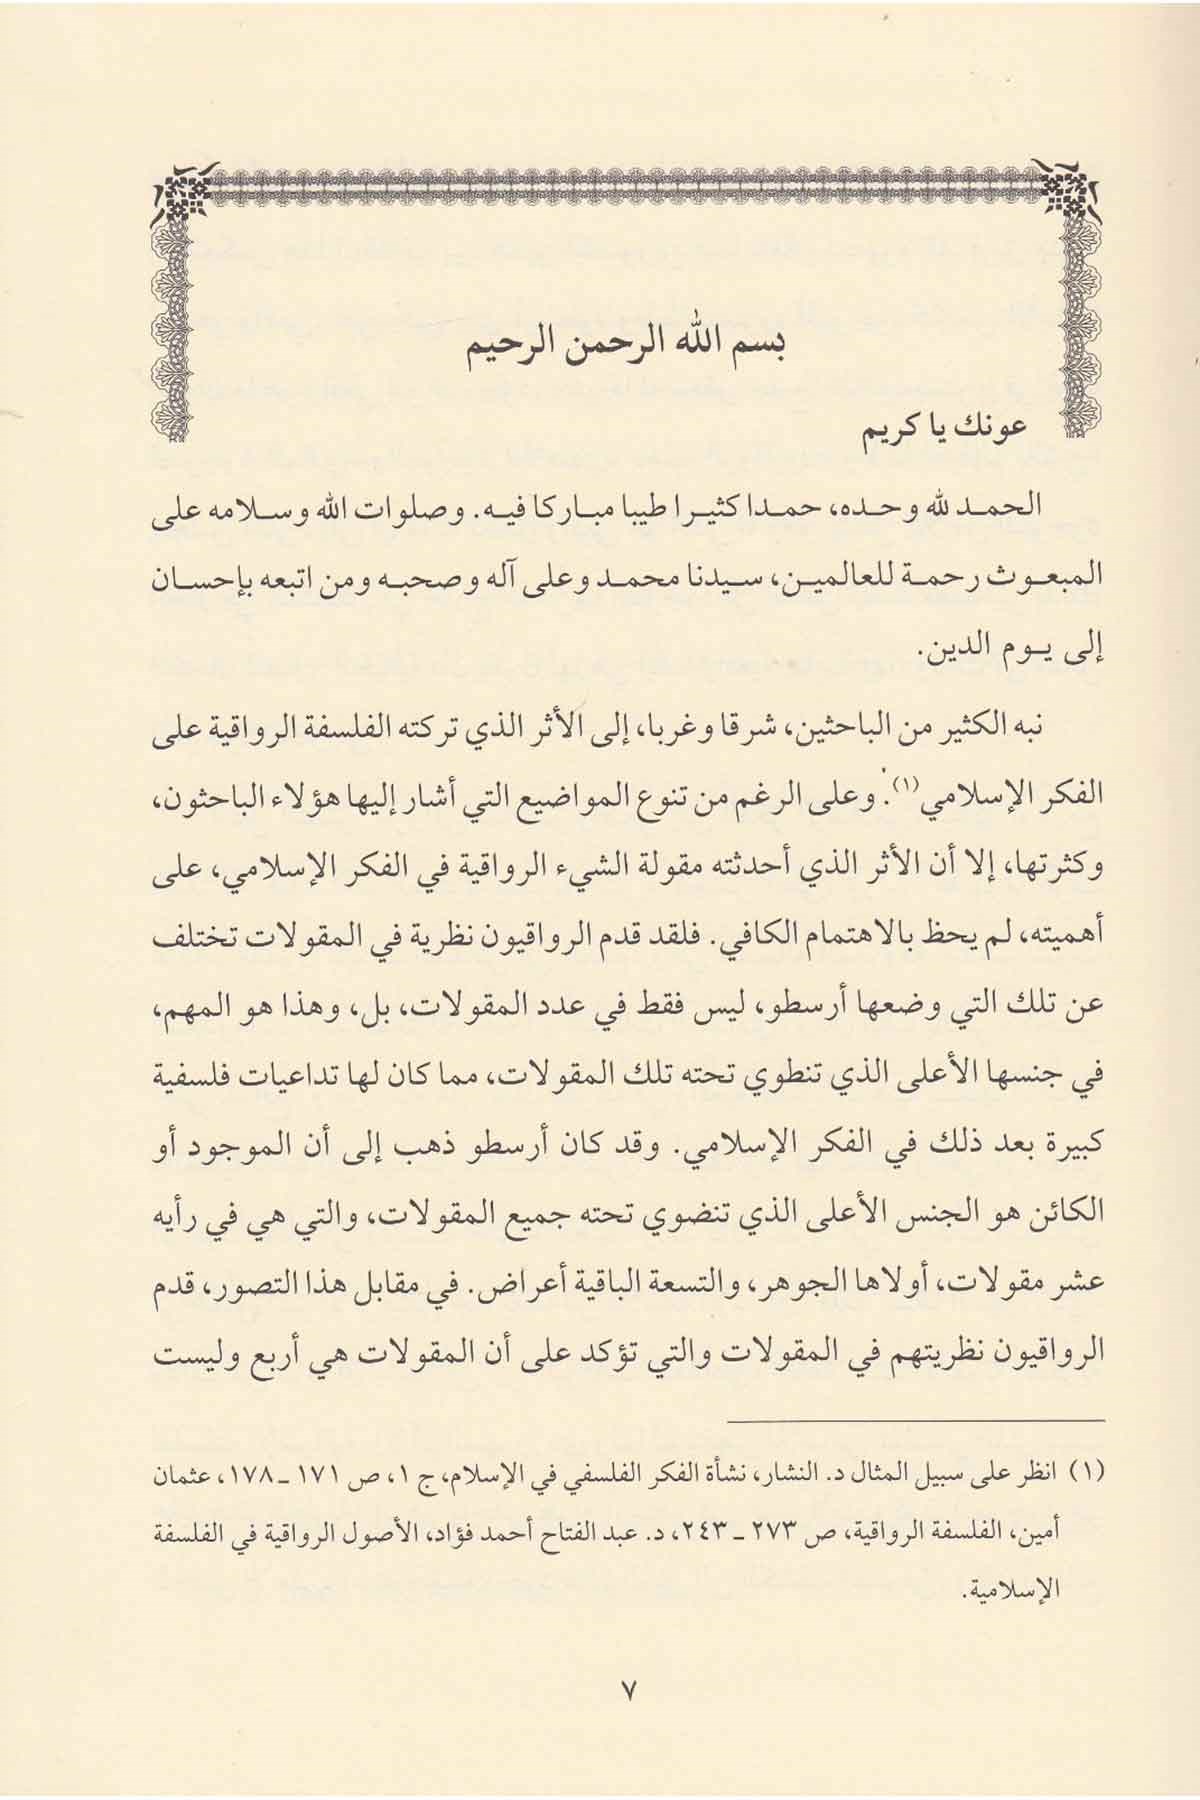 بسم الله الرحمن الرحيم
عونك يا كريم
الحمد لله وحده، حمدا كثيرا طيبا مباركا فيه. وصلوات الله وسلامه على
المبعوث رحمة للعالمين، سيدنا محمد وعلى آله وصحبه ومن اتبعه بإحسان
إلى يوم الدين.
نبه الكثير من الباحثين، شرقا وغربا، إلى الأثر الذي تركته الفلسفة الرواقية على
الفكر الإسلامي(١). وعلى الرغم من تنوع المواضيع التي أشار إليها هؤلاء الباحثون،
وكثرتها، إلا أن الأثر الذي أحدثته مقولة الشيء الرواقية في الفكر الإسلامي، على
أهميته، لم يحظ بالاهتمام الكافي. فلقد قدم الرواقيون نظرية في المقولات تختلف
عن تلك التي وضعها أرسطو، ليس فقط في عدد المقولات، بل، وهذا هو المهم،
في جنسها الأعلى الذي تنطوي تحته تلك المقولات، مما كان لها تداعيات فلسفية
كبيرة بعد ذلك في الفكر الإسلامي. وقد كان أرسطو ذهب إلى أن الموجود أو
الكائن هو الجنس الأعلى الذي تنضوي تحته جميع المقولات، والتي هي في رأيه
عشر مقولات، أولاها الجوهر، والتسعة الباقية أعراض. في مقابل هذا التصور، قدم
الرواقيون نظريتهم في المقولات والتي تؤكد على أن المقولات هي أربع وليست
(١) انظر على سبيل المثال د. النشار، نشأة الفكر الفلسفي في الإسلام، ج ١، ص ١٧١ ـ ١٧٨، عثمان
أمين، الفلسفة الرواقية، ص ٢٧٣ ـ ٢٤٣، د. عبد الفتاح أحمد فؤاد، الأصول الرواقية في الفلسفة
الإسلامية.
٧